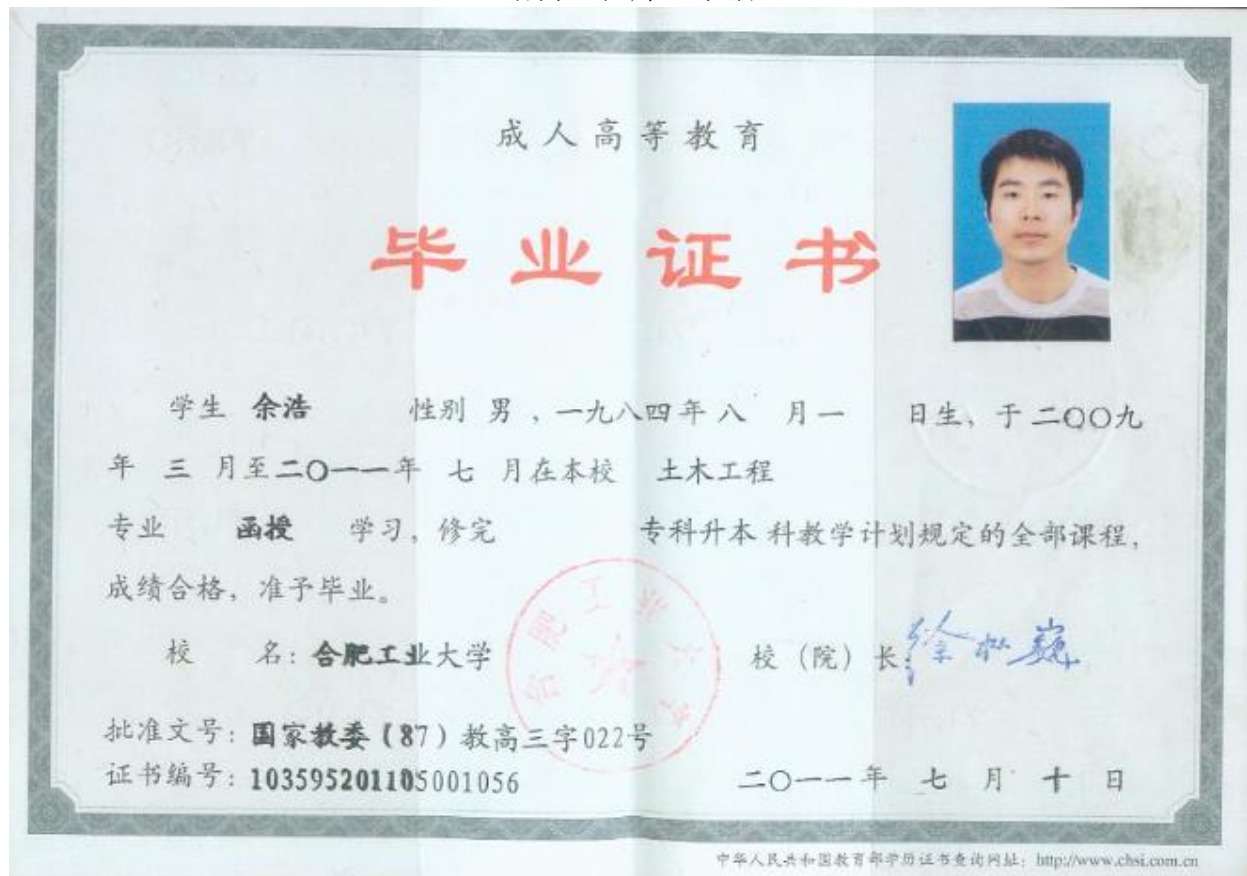 成人高等教育
毕业证书
学生 余浩 性别 男，一九八四年八 月一 日生、于二〇〇九
年 三 月至二〇一一年 七 月在本校 土木工程
专业 函授 学习，修完 专科升本 科教学计划规定的全部课程，
成绩合格，准予毕业。
校 名：合肥工业大学 校（院）长：
批准文号：国家教委（87）教高三字022号
证书编号：103595201105001056 二〇一一年 七 月 十 日
合肥工业大学
中华人民共和国教育部学历证书查询网址：http://www.chsi.com.cn